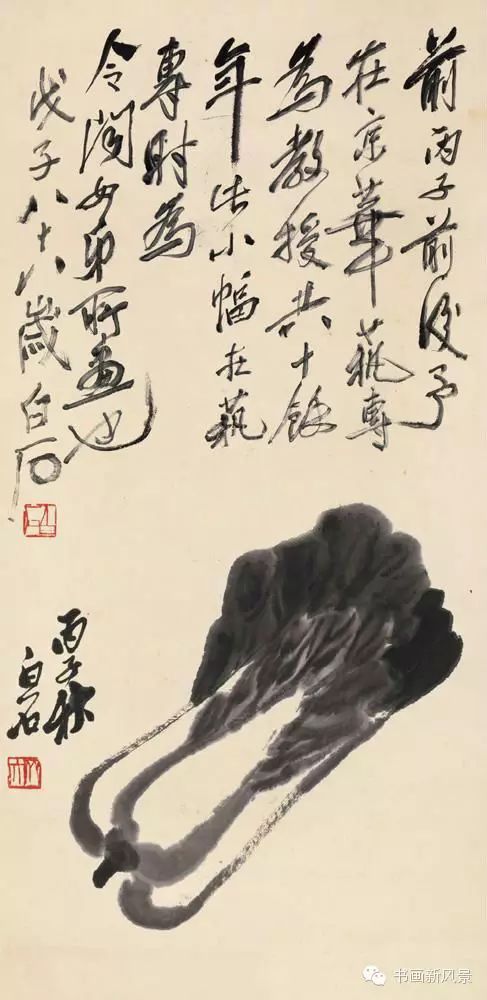 前丙子前後予
在京華藝專
為教授共十餘
年此小幅在藝
專時為
令閒女弟所畫也
戊子八十八歲白石
白石
丙子秋
白石
书画新风景